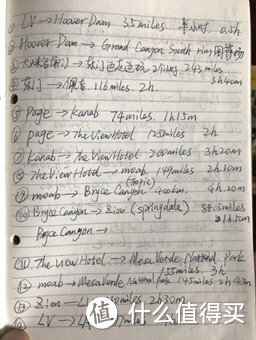 ① LV → Hoover Dam 35 miles 半小时 0.5h
② Hoover Dam → Grand Canyon South rim
③ 243 miles
3h40m
④ 东门 → 佩吉 116 miles 2h
⑤ Page → Kanab 74 miles 1h15m
⑥ page → The View Hotel 125 miles 2h
⑦ Kanab → The View Hotel 200 miles 3h20m
⑧ The View Hotel → moab 149 miles 2h30m
(Tropic)
⑨ moab → Bryce Canyon 4h20m
⑩ Bryce Canyon → Zion (springdale)
Bryce Canyon →
⑪ The View Hotel → Mesa Verde National Park
155 miles 3h
⑫ moab → Mesa Verde National Park 145 miles 2h40m
⑬ Zion → miles 2h30m
⑭ LV → LA miles
值 什么值得买